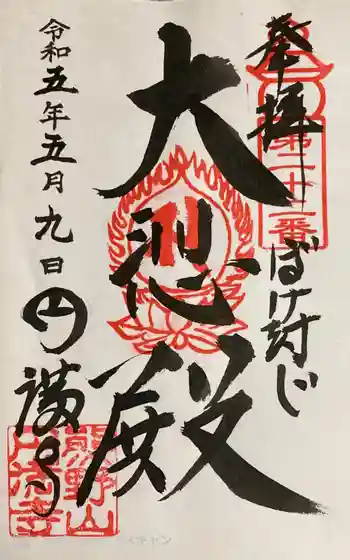 奉拝
第二十二番
ぼけ封じ
大悲殿
令和五年五月九日
円満寺
熊野山
円満寺